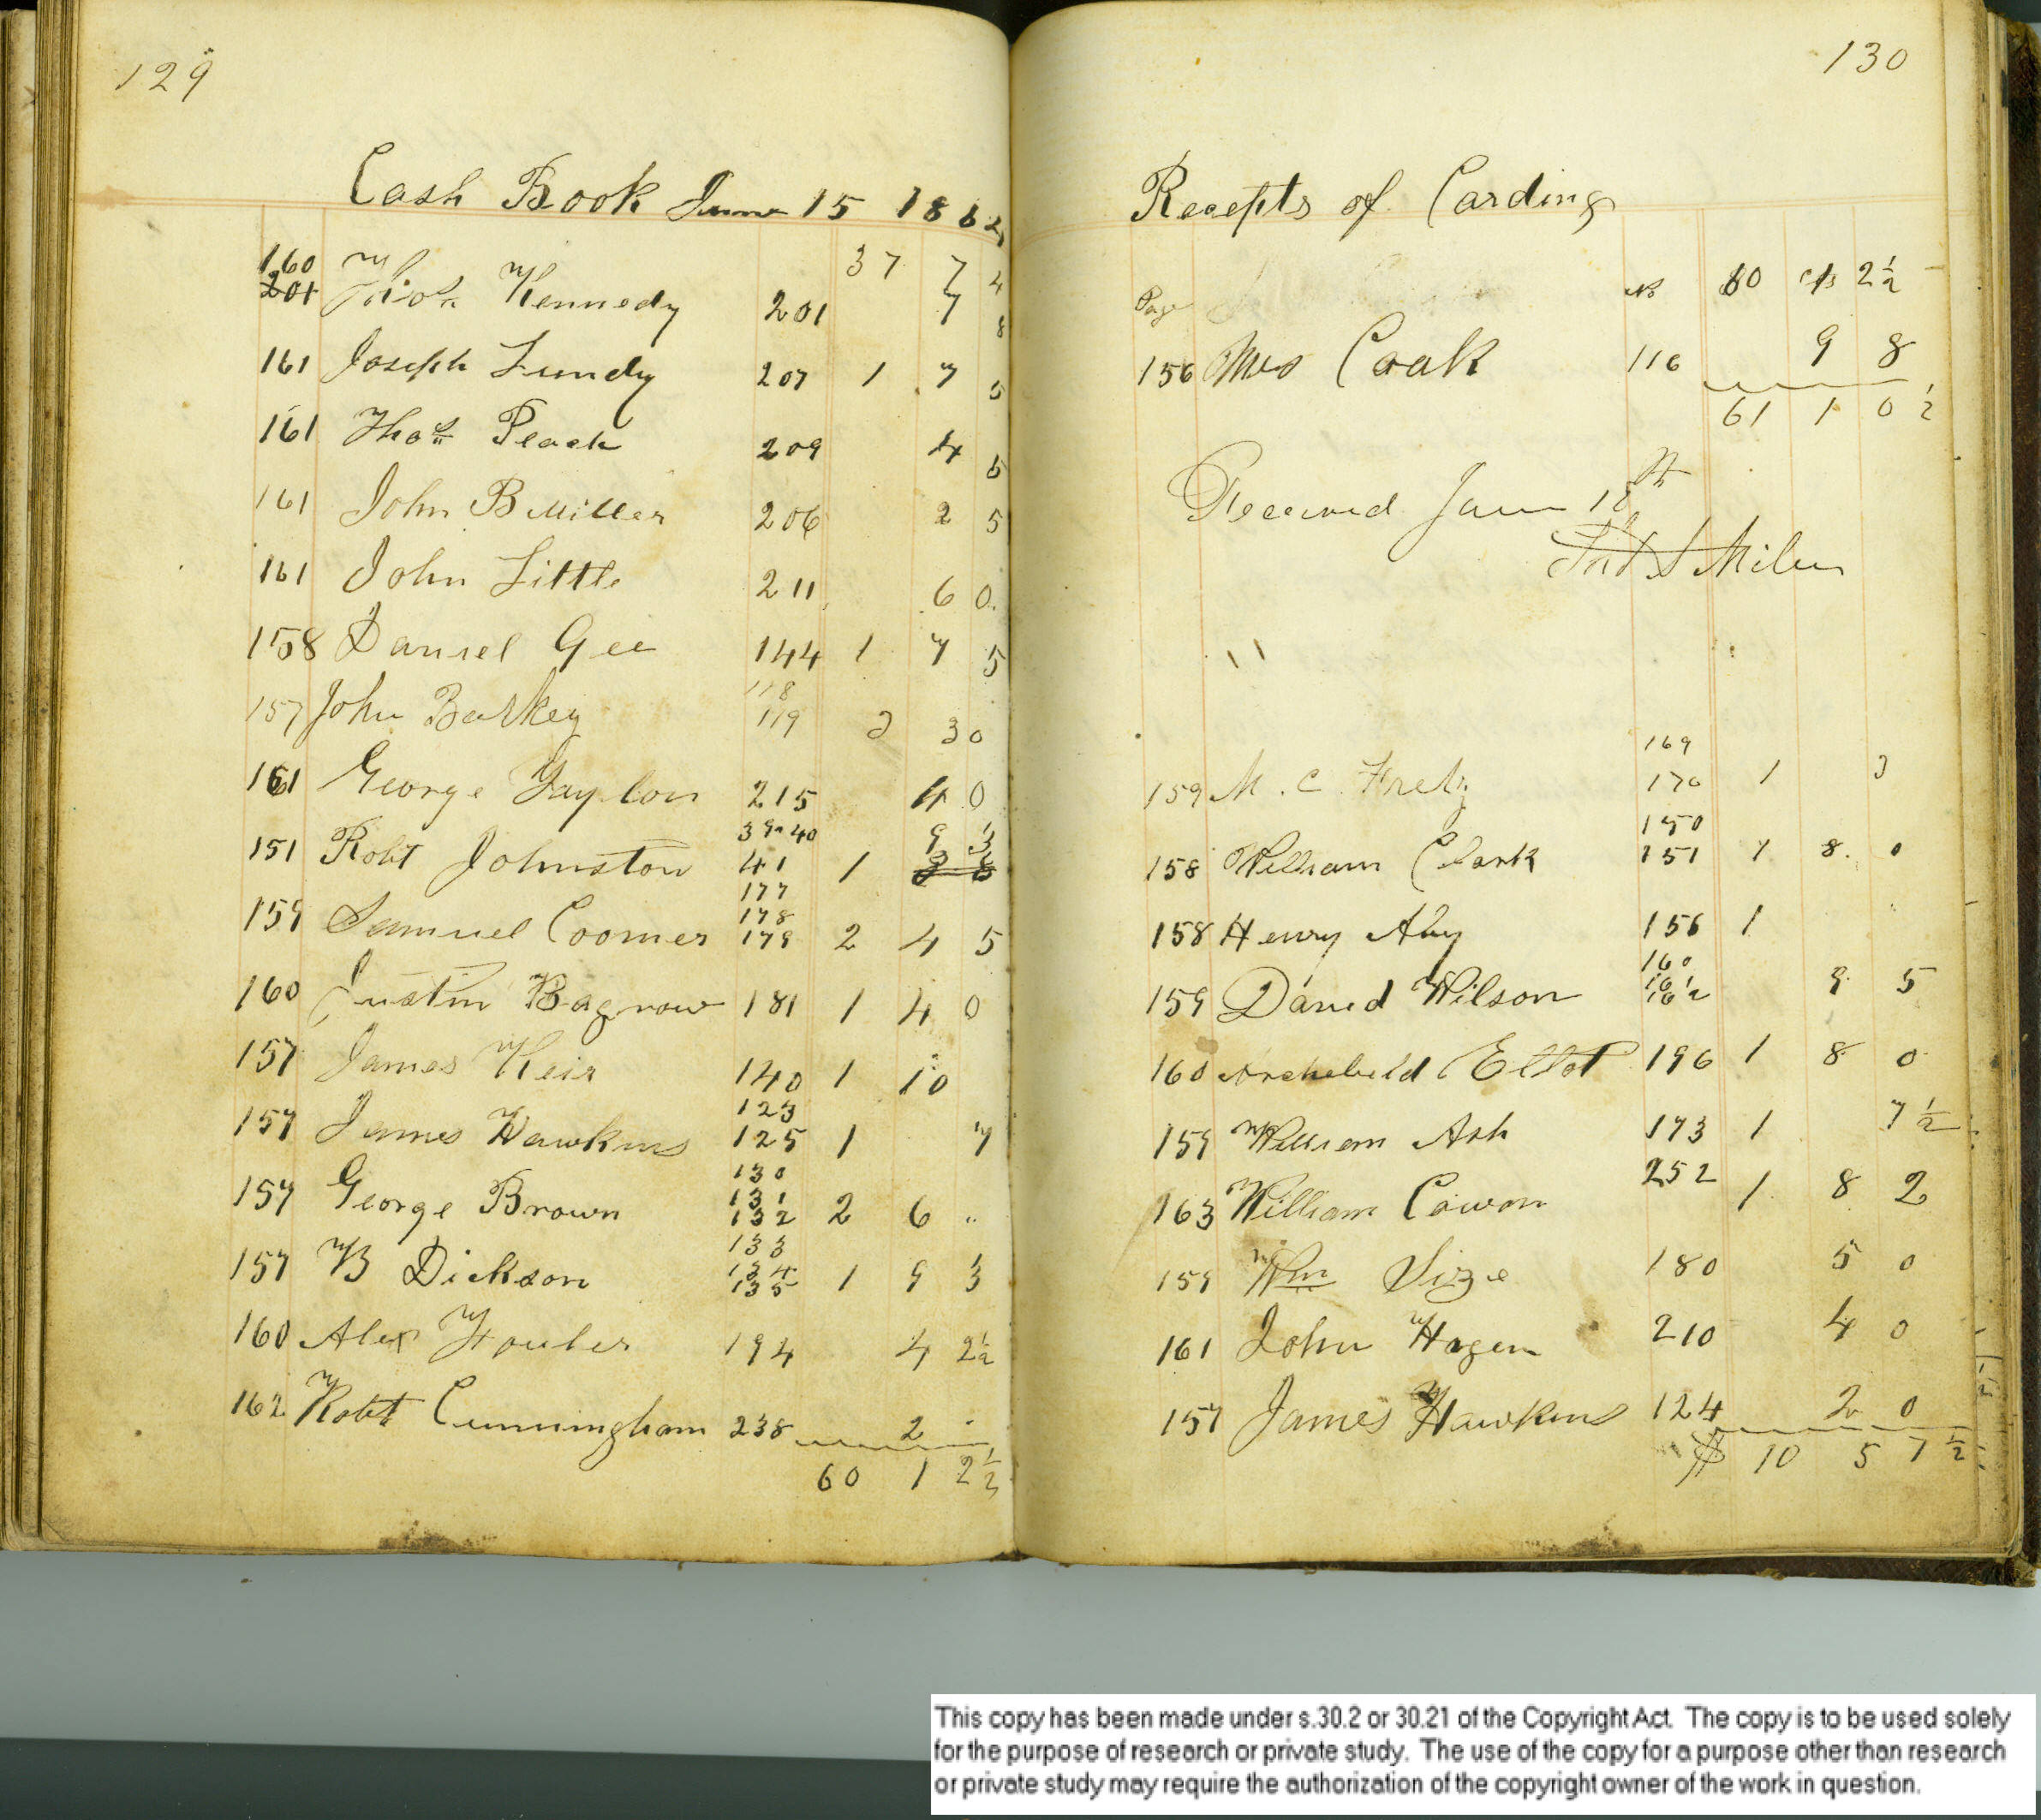 129
Cash Book June 15 1862
37 7 4
160
201 Thos Kennedy 201 7 8
161 Joseph Lundy 207 1 7 5
161 Thos Peach 209 4 5
161 John B Miller 206 2 5
161 John Little 211 6 0
158 Daniel Gee 144 1 7 5
118
157 John Barkey 119 2 30
161 George Gaylon 215 4 0
39 40 9 3
151 Robt Johnston 41 1
177
178
159 Samuel Coomer 179 2 4 5
160 Justin Bagrow 181 1 4 0
157 James Keir 140 1 10
123
157 James Hawkins 125 1 7
130
131
157 George Brown 132 2 6 "
133
134
157 W Dickson 135 1 9 3
160 Alex Fouler 194 4 2½
162 Robt Cunningham 238 2
60 1 2½
130
Recepts of Carding
Page No 60 cts 2½
156 Mrs Cook 116 9 8
61 1 0½
Received June 18th
Miller
" 
169
159 M. C. Fretz 170 1 3
150
158 William Clark 151 1 8 0
158 Henry Aby 156 1
160
161
159 David Wilson 162 9 5
160 Archebeld Ellot 196 1 8 0
159 William Ash 173 1 7½
163 William Cowon 252 1 8 2
159 Wm Size 180 5 0
161 John Hagen 210 4 0
157 James Hawkins 124 2 0
$ 10 5 7½
This copy has been made under s.30.2 or 30.21 of the Copyright Act. The copy is to be used solely
for the purpose of research or private study. The use of the copy for a purpose other than research
or private study may require the authorization of the copyright owner of the work in question.